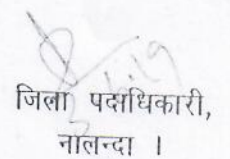 जिला पदाधिकारी,
नालन्दा ।